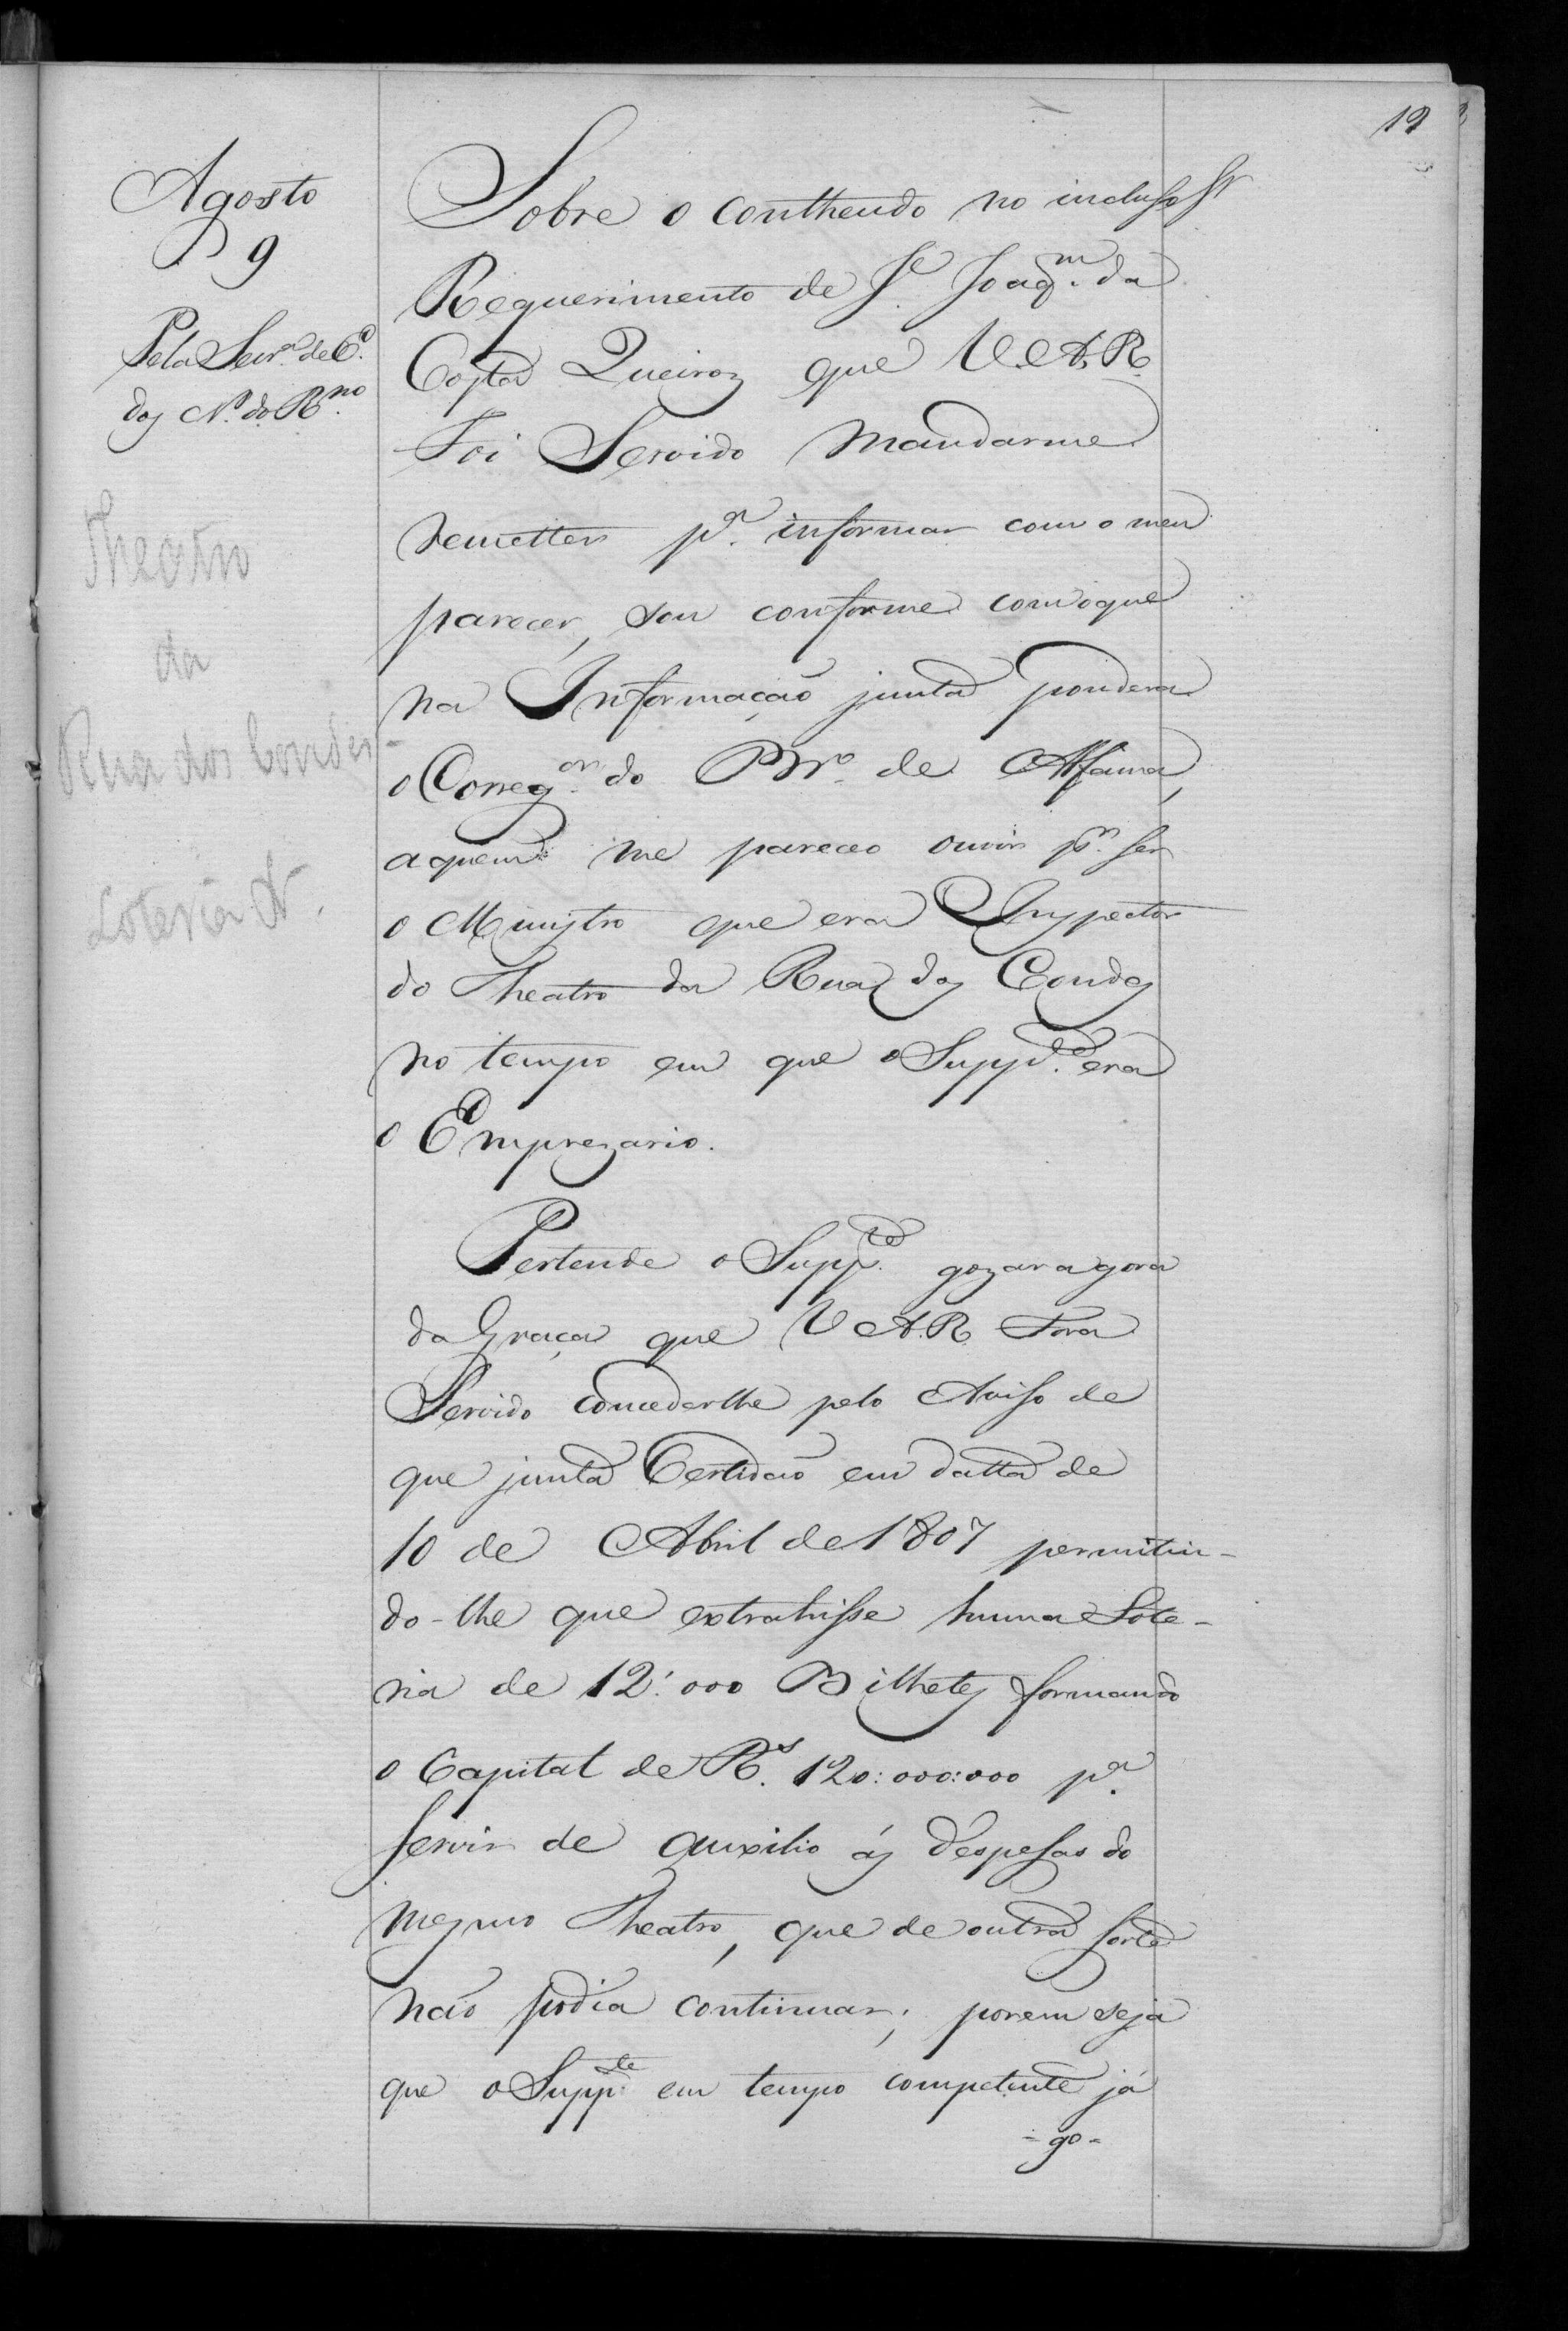 19
Agosto
9
Pela Secr.ª de E.º
dos N.º do R.no
Theatro
da
Rua dos Condes
Loteria
Sobre o contheudo no incluso
Requerimento de J.e Joaq.m da
Costa Queiroz que V.A.R.
Foi Servido Mandarme
remetter p.ª informar com o meu
parecer, sou conforme com o que
na Informação junta pondera
o Correg.or do Brro. de Alfama,
a quem me pareceo ouvir p.r ser
o Ministro que era Inspector
do Theatro da Rua dos Condes
no tempo em que o Supp.te era
o Emprezario.
Pertende o Supp.te gozar agora
da Graça que V.A.R. Fora
Servido concederlhe pelo Aviso de
que junta Certidão em datta de
10 de Abril de 1807 permitin-
do-lhe que extrahisse huma Lote-
ria de 12:000 Bilhetes formando
o Capital de R.s 120:000:000 p.ª
servir de auxilio ás despesas do
mesmo Theatro, que de outra sorte
não podia continuar; porem seja
que o Supp.te em tempo competente já
-go-